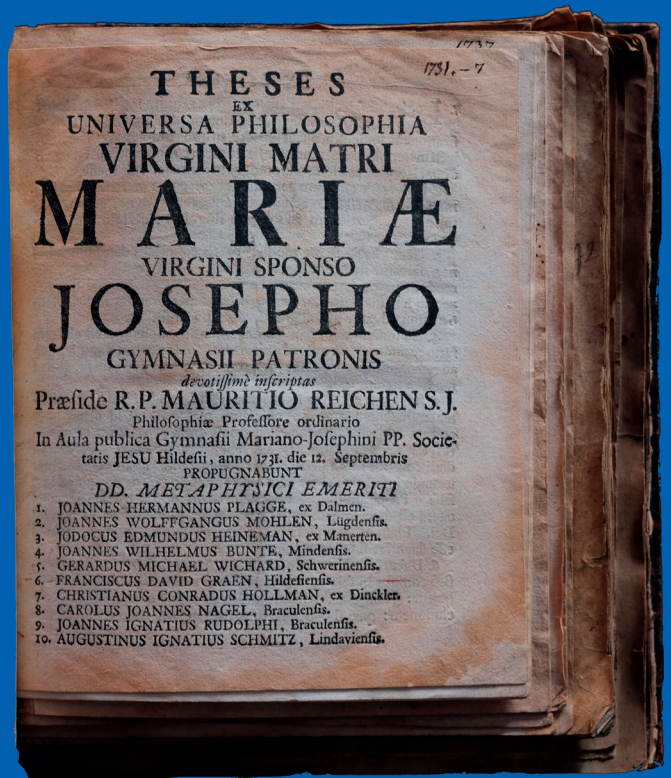 1737
1731. – 7
THESES
EX
UNIVERSA PHILOSOPHIA
VIRGINI MATRI
MARIÆ
VIRGINI SPONSO
JOSEPHO
GYMNASII PATRONIS
devotiſſimè inſcriptas
Præſide R.P. MAURITIO REICHEN S.J.
Philoſophiæ Profeſſore ordinario
In Aula publica Gymnaſii Mariano-Joſephini PP. Socie-
tatis JESU Hildeſii, anno 1731. die 12. Septembris
PROPUGNABUNT
DD. METAPHYSICI EMERITI
1. JOANNES HERMANNUS PLAGGE, ex Dalmen.
2. JOANNES WOLFFGANGUS MOHLEN, Lügdenſis.
3. JODOCUS EDMUNDUS HEINEMAN, ex Manerten.
4. JOANNES WILHELMUS BUNTE, Mindenſis.
5. GERARDUS MICHAEL WICHARD, Schwerinenſis.
6. FRANCISCUS DAVID GRAEN, Hildeſienſis.
7. CHRISTIANUS CONRADUS HOLLMAN, ex Dinckler.
8. CAROLUS JOANNES NAGEL, Braculenſis.
9. JOANNES IGNATIUS RUDOLPHI, Braculenſis.
10. AUGUSTINUS IGNATIUS SCHMITZ, Lindavienſis.